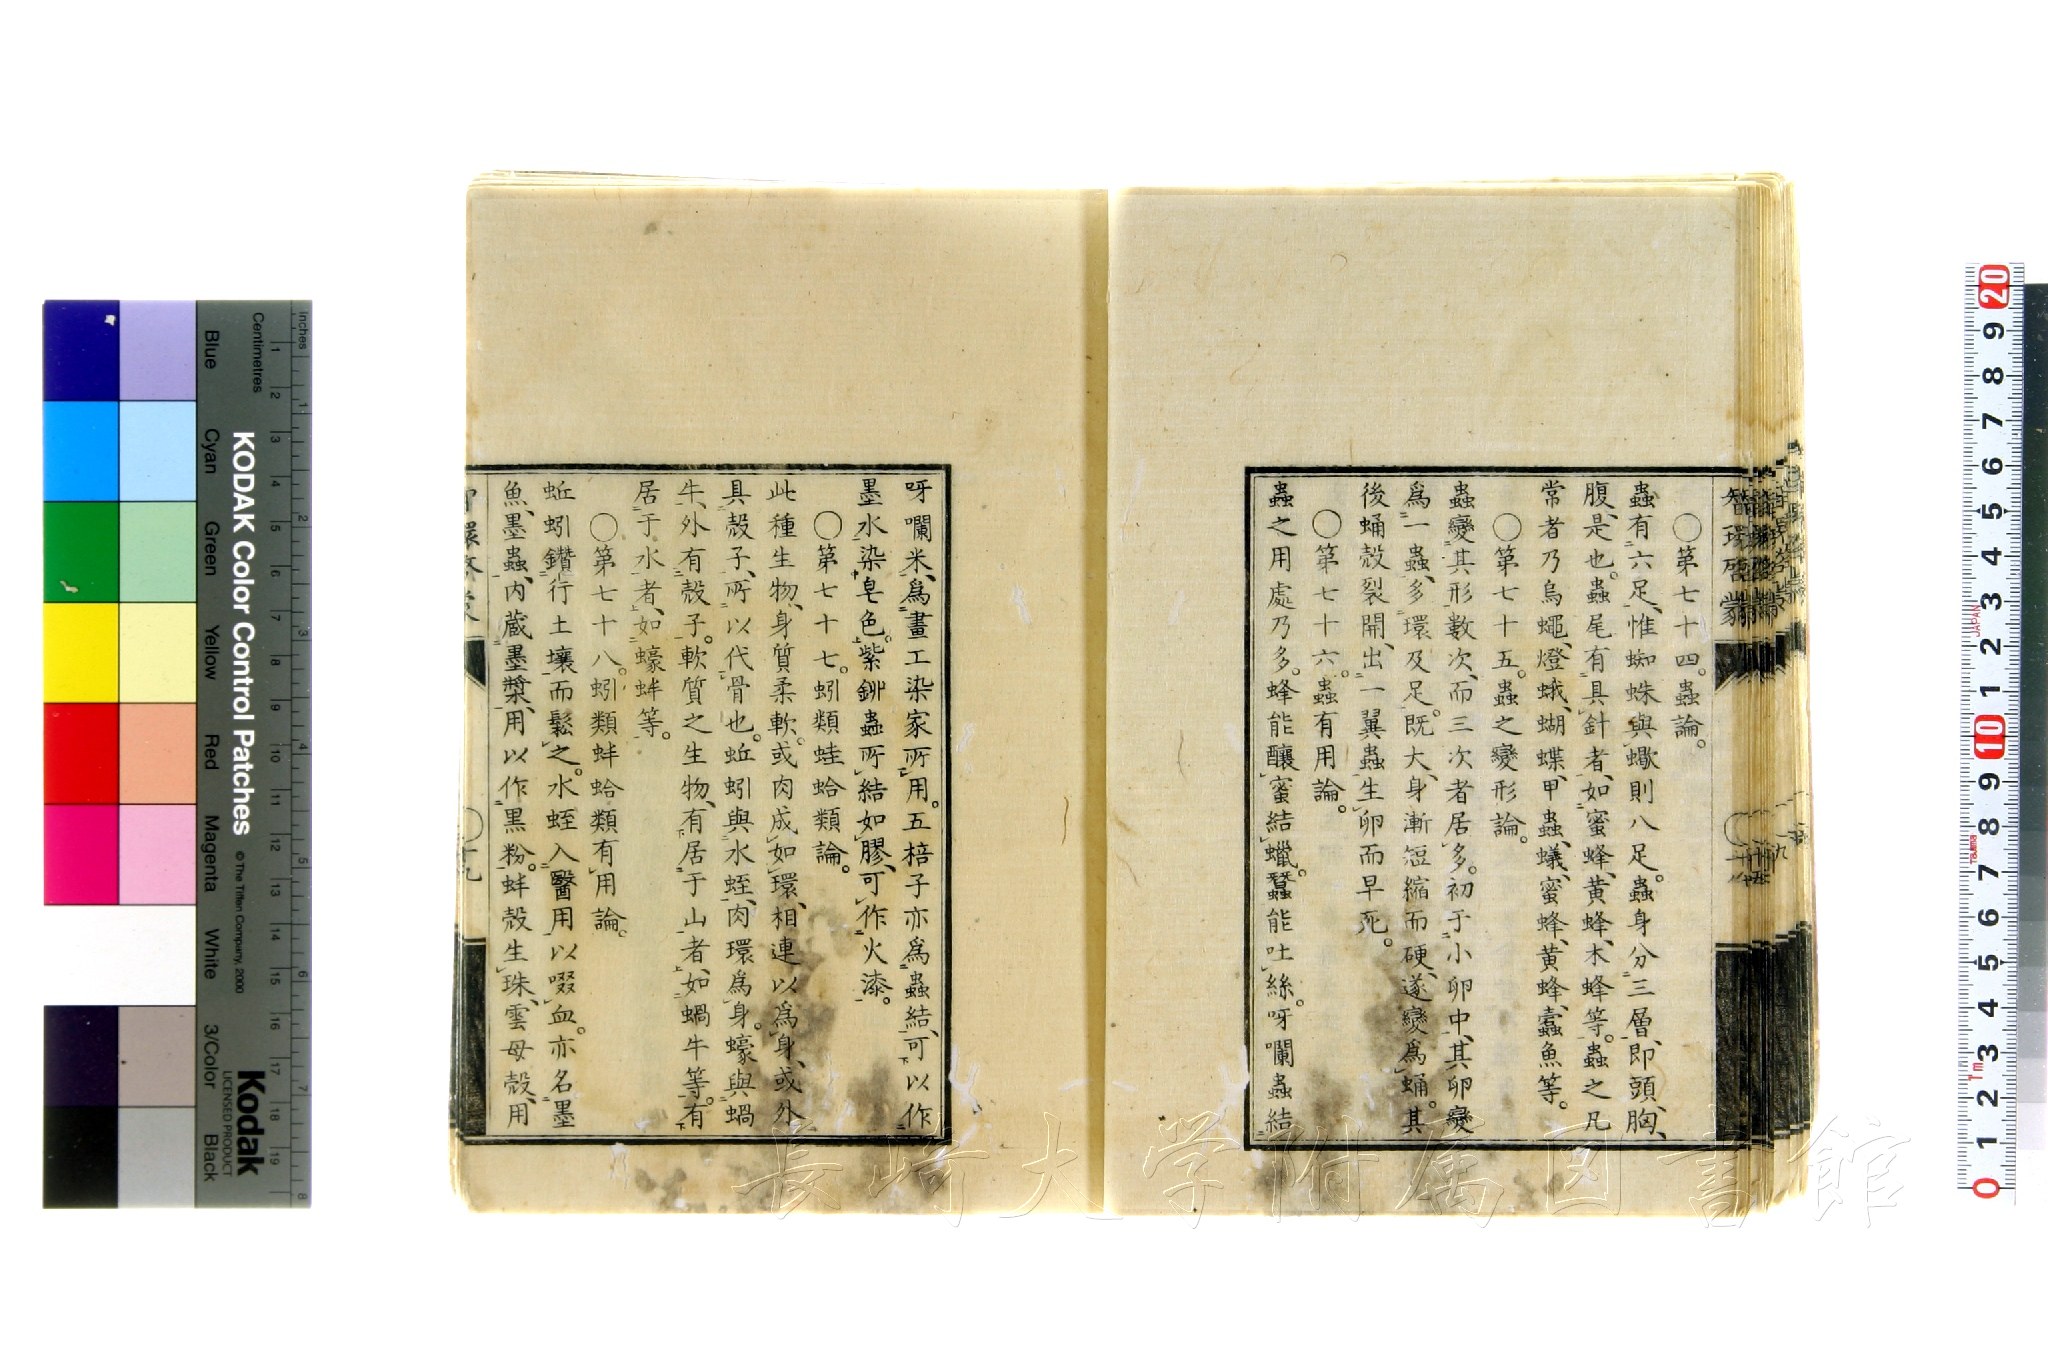 智環啓蒙
〇第七十四。蟲論。
蟲有六足、惟蜘蛛與蠍則八足。蟲身分三層、即頭、胸、
腹、是也。蟲尾有具針者、如蜜蜂、黄蜂、木蜂等。蟲之凡
常者乃烏蠅、燈蛾、蝴蝶、甲蟲、蟻、蜜蜂、黄蜂、蠹魚等。
〇第七十五。蟲之變形論。
蟲變其形數次、而三次者居多。初于小卵中、其卵變
爲一蟲、多環及足。既大、身漸短縮而硬、遂變爲蛹。其
後蛹殼裂開、出一翼蟲、生卵而早死。
〇第七十六。蟲有用論。
蟲之用處乃多。蜂能釀蜜結蠟。蠶能吐絲。呀囒蟲結
呀囒米、爲畫工染家所用。五棓子亦爲蟲結、可以作
墨水染皂色。紫鉚蟲所結如膠、可作火漆。
〇第七十七。蚓類蛙蛤類論。
此種生物、身質柔軟。或肉成如環、相連以爲身、或外
具殼子、所以代骨也。蚯蚓與水蛭、肉環爲身。蠔與蝸
牛、外有殼子。軟質之生物、有居于山者、如蝸牛等。有
居于水者、如蠔蚌等。
〇第七十八。蚓類蚌蛤類有用論。
蚯蚓鑽行土壤而鬆之。水蛭入醫用以啜血。亦名墨
魚、墨蟲、内蔵墨漿、用以作黒粉。蚌殼生珠、雲母殼、用
KODAK Color Control Patches
© The Tiffen Company, 2000
Kodak
LICENSED PRODUCT
Inches
Centimetres
Blue
Cyan
Green
Yellow
Red
Magenta
White
3/Color
Black
長崎大学附属図書館
JAPAN